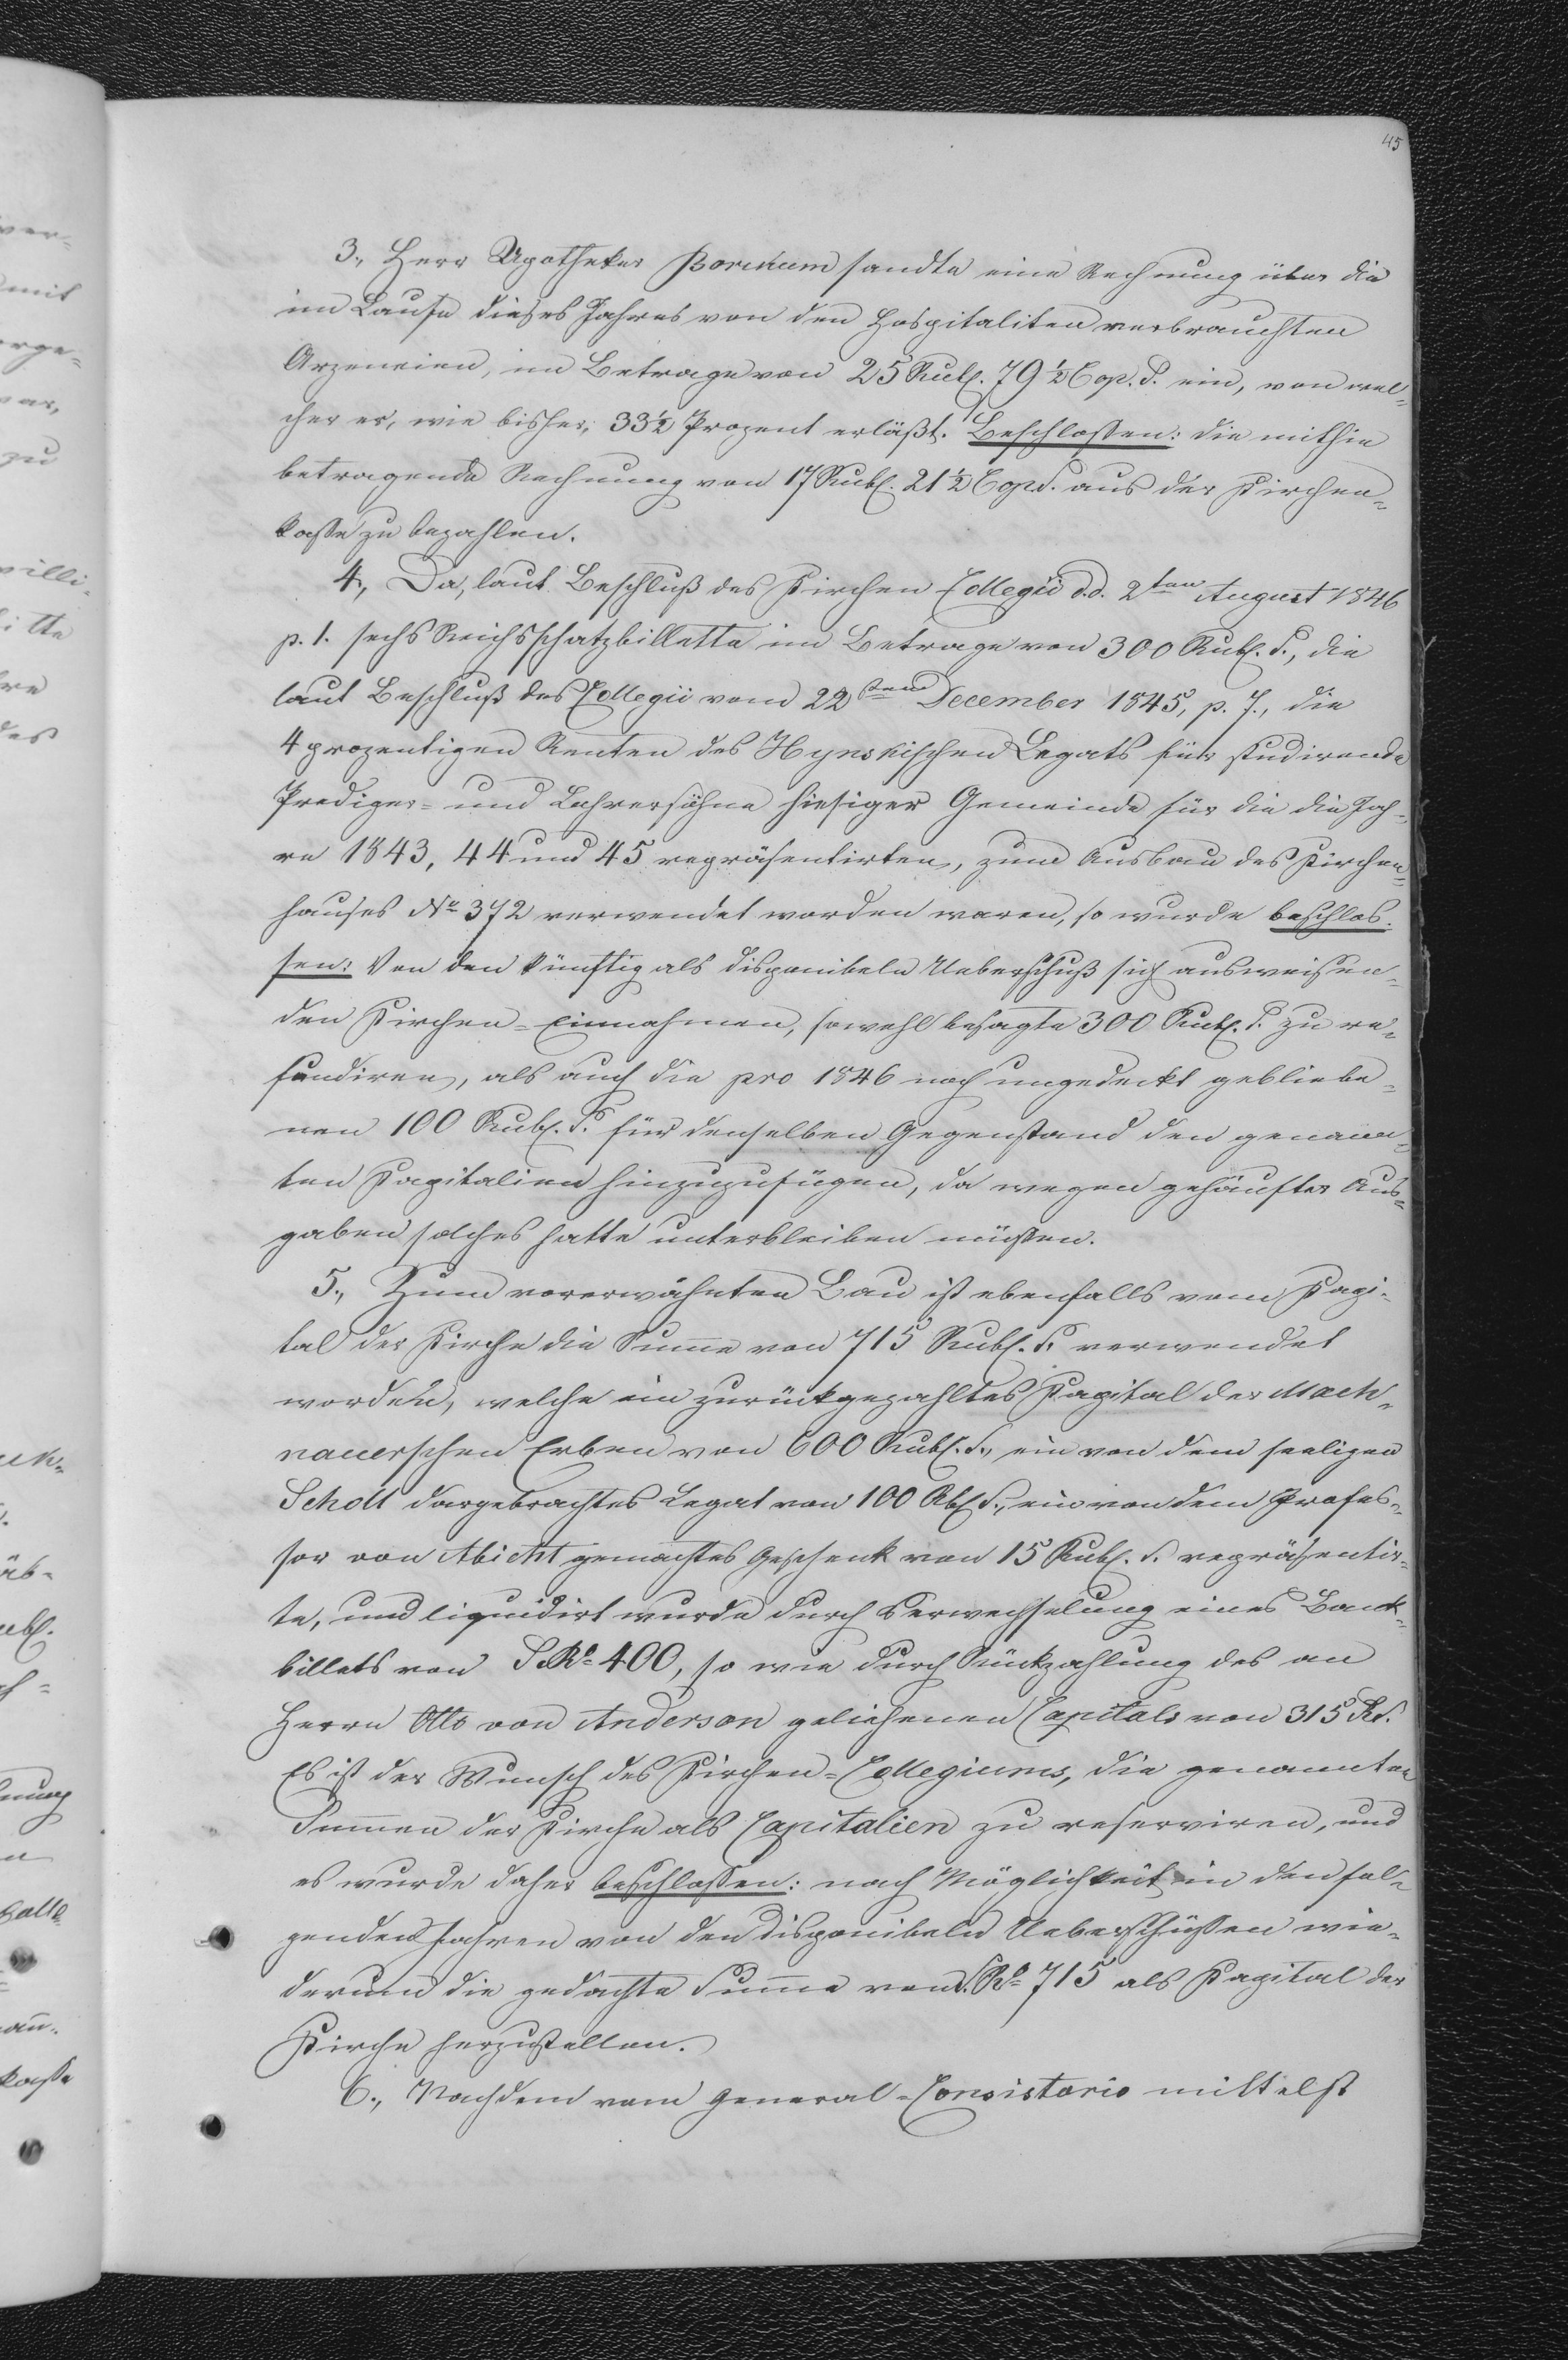 45
3., Herr Apotheker Borchum sandte eine Rechnung über die
im Laufe dieses Jahres von den Hospitaliten verbrauchten
Arzeneien, im Betrage von 25 Rubl. 79 ½ Cop. S. ein, von wel-
cher er, wie bisher, 33½ Prozent erläßt. Beschlossen: die mithin
betragende Rechnung von 17 Rubl. 21 ½ Cop. S. aus der Kirchen-
kasse zu bezahlen.
4., Da, laut Beschluß des Kirchen Collegii d.d. 2ten August 1846
p. 1. sechs Reichsschatzbillette im Betrage von 300 Rubl. S., die
laut Beschluß des Collegii vom 22sten December 1845, p. 7., die
4 prozentigen Renten des Hynskischen Legats für studirende
Prediger- und Lehrersöhne hiesiger Gemeinde für die die Jah-
re 1843, 44 und 45 repräsentirten, zum Ausbau des Kirchen-
hauses No 372 verwendet worden waren, so wurde beschlos-
sen: Von den künftig als disponibeln Ueberschuß sich ausweisen-
den Kirchen-Einnahmen, sowohl besagte 300 Rubl. S. zu re-
fundiren, als auch die pro 1846 noch ungedeckt gebliebe-
nen 100 Rubl. S. für denselben Gegenstand den genann-
ten Kapitalien hinzuzufügen, da wegen gehäufter Aus-
gaben solches hatte unterbleiben müssen.
5., Zum vorerwähnten Bau ist ebenfalls vom Kapi-
tal der Kirche die Summe von 715 Rubl. S. verwendet
worden, welche ein zurückgezahltes Kapital der Mach-
nauerschen Erben von 600 Rubl. S., ein von dem seeligen
Scholl dargebrachtes Legat von 100 Rbl. S., ein von dem Profes-
sor von Abicht gemachtes Geschenk von 15 Rubl. S. repräsentir-
te, und liquidirt wurde durch Verwechselung eines Bank-
billets von S.Ro 400, so wie durch Rückzahlung des an
Herrn Otto von Anderson geliehenen Capitals von 315 R.S.
Es ist der Wunsch des Kirchen-Collegiums, die genannten
Summen der Kirche als Capitalien zu reserviren, und
es wurde daher beschlossen: nach Möglichkeit in den fol-
genden Jahren von den disponibeln Ueberschüssen wie-
derum die gedachte Summe von S.Ro 715 als Kapital der
Kirche herzustellen.
6., Nachdem vom General-Consistorio mittelst